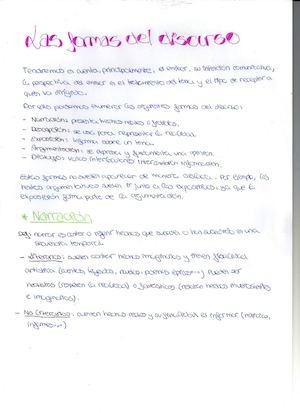 Las formas del discurso
Tendremos en cuenta, principalmente, el emisor, su intención comunicativa,
la perspectiva del emisor en el tratamiento del tema y el tipo de receptor a
quien va dirigido.
Por ello podemos enumerar las siguientes formas del discurso:
- Narración: presenta hechos reales o ficticios.
- Descripción: se usa para representar la realidad.
- Exposición: informa sobre un tema.
- Argumentación: se expresa y justifica una opinión.
- Diálogo: varios interlocutores intercambian información.
Estas formas no suelen aparecer de manera aislada. Por ejemplo, los
textos argumentativos suelen ir junto a los expositivos ya que la
exposición forma parte de la argumentación.
* Narración
Def: narrar es contar o referir hechos que suceden o han sucedido en una
secuencia temporal.
- Literarias: suelen contener hechos imaginarios y tienen finalidad
artística (cuentos, leyendas, novelas, poemas épicos...) Pueden ser
realistas (respetan la realidad) o fantásticas (relatan hechos
e imaginarios).
- No literarias: cuentan hechos reales y su finalidad es informar (noticias,
informes...)